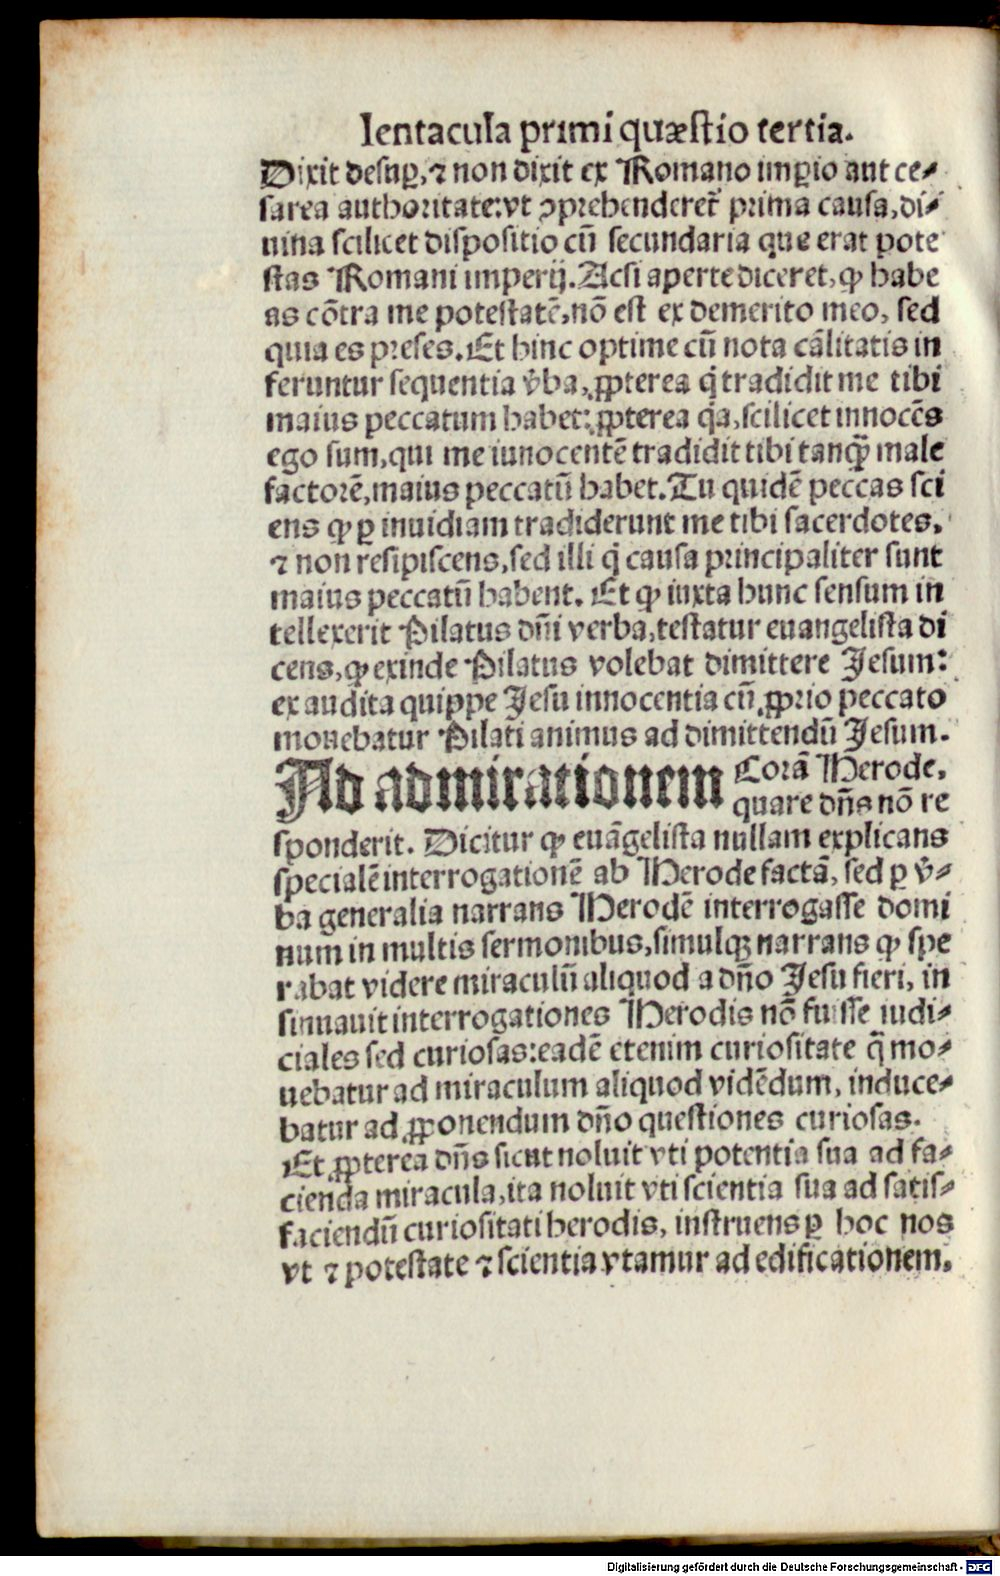 Ientacula primi quæstio tertia.
Dixit desuꝑ, ⁊ non dixit ex Romano imꝑio aut ce⸗
sarea authoritate: vt ꝯprehenderet᷑ prima causa, di⸗
uina scilicet dispositio cū secundaria que erat pote
stas Romani imperij. Acsi aperte diceret, ꝙ habe
as cōtra me potestatē, nō est ex demerito meo, sed
quia es preses. Et hinc optime cū nota cālitatis in
feruntur sequentia v̄ba, ꝓpterea q̇ tradidit me tibi
maius peccatum habet: ꝓpterea q̇a, scilicet innocēs
ego sum, qui me innocentē tradidit tibi tanꝙ̄ male
factorē, maius peccatū habet. Tu quidē peccas sci
ens ꝙ ꝑ inuidiam tradiderunt me tibi sacerdotes,
⁊ non resipiscens, sed illi q̇ causa principaliter sunt
maius peccatū habent. Et ꝙ iuxta hunc sensum in
tellexerit Pilatus dn̄i verba, testatur euangelista di
cens, ꝙ exinde Pilatus volebat dimittere Jesum:
ex audita quippe Jesu innocentia cū ꝓprio peccato
mouebatur Pilati animus ad dimittendū Jesum.
Ad admirationem Corā Herode,
quare dn̄s nō re
sponderit. Dicitur ꝙ euāgelista nullam explicans
specialē interrogationē ab Herode factā, sed ꝑ v̄⸗
ba generalia narrans Herodē interrogasse domi
num in multis sermonibus, simulqꝫ narrans ꝙ spe
rabat videre miraculū aliquod a dn̄o Jesu fieri, in
sinuauit interrogationes Herodis nō fuisse iudi⸗
ciales sed curiosas: eadē etenim curiositate q̄ mo⸗
uebatur ad miraculum aliquod vidēdum, induce⸗
batur ad ꝓponendum dn̄o questiones curiosas.
Et ꝓpterea dn̄s sicut noluit vti potentia sua ad fa⸗
cienda miracula, ita noluit vti scientia sua ad satis⸗
faciendū curiositati herodis, instruens ꝑ hoc nos
vt ⁊ potestate ⁊ scientia vtamur ad edificationem.
Digitalisierung gefördert durch die Deutsche Forschungsgemeinschaft - DFG